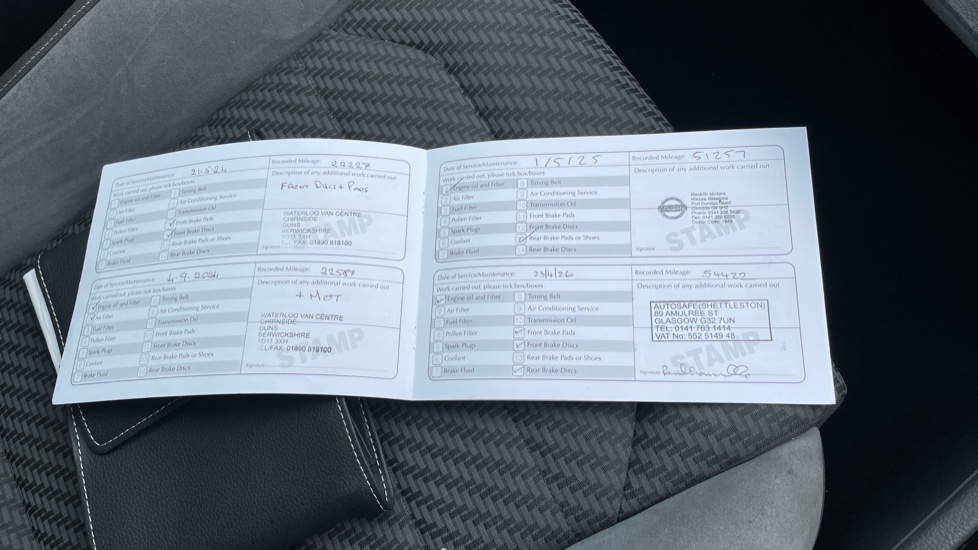 Date of Service/Maintenance: 21.5.24
Recorded Mileage: 22227
Work carried out, please tick box/boxes
Description of any additional work carried out
Engine oil and Filter
Timing Belt
Air Filter
Air Conditioning Service
Fuel Filter
Transmission Oil
Pollen Filter
Front Brake Pads
Spark Plugs
Front Brake Discs
Coolant
Rear Brake Pads or Shoes
Brake Fluid
Rear Brake Discs
Discs + Pads
WATERLOO VAN CENTRE
CHIRNSIDE
DUNS
BERWICKSHIRE
FAX. 01890 818100
STAMP
Signature
Date of Service/Maintenance: 4.9.2024
Recorded Mileage: 22587
Work carried out, please tick box/boxes
Description of any additional work carried out
Engine oil and Filter
Timing Belt
Air Filter
Air Conditioning Service
Fuel Filter
Transmission Oil
Pollen Filter
Front Brake Pads
Spark Plugs
Front Brake Discs
Coolant
Rear Brake Pads or Shoes
Brake Fluid
Rear Brake Discs
+ MOT
WATERLOO VAN CENTRE
CHIRNSIDE
DUNS
BERWICKSHIRE
TD11 3XH
TEL/FAX. 01890 818100
STAMP
Signature
Date of Service/Maintenance: 1/5/25
Recorded Mileage: 51257
Work carried out, please tick box/boxes
Description of any additional work carried out
Engine oil and Filter
Timing Belt
Air Filter
Air Conditioning Service
Fuel Filter
Transmission Oil
Pollen Filter
Front Brake Pads
Spark Plugs
Front Brake Discs
Coolant
Rear Brake Pads or Shoes
Brake Fluid
Rear Brake Discs
Macklin Motors
Nissan Glasgow
STAMP
Signature
Date of Service/Maintenance: 23/4/26
Recorded Mileage: 54427
Work carried out, please tick box/boxes
Description of any additional work carried out
Engine oil and Filter
Timing Belt
Air Filter
Air Conditioning Service
Fuel Filter
Transmission Oil
Pollen Filter
Front Brake Pads
Spark Plugs
Front Brake Discs
Coolant
Rear Brake Pads or Shoes
Brake Fluid
Rear Brake Discs
AUTOSAFE(SHETTLESTON)
89 AMULREE ST
GLASGOW G32 7UN
TEL: 0141 763 1414
VAT No: 552 5149 48
STAMP
Signature